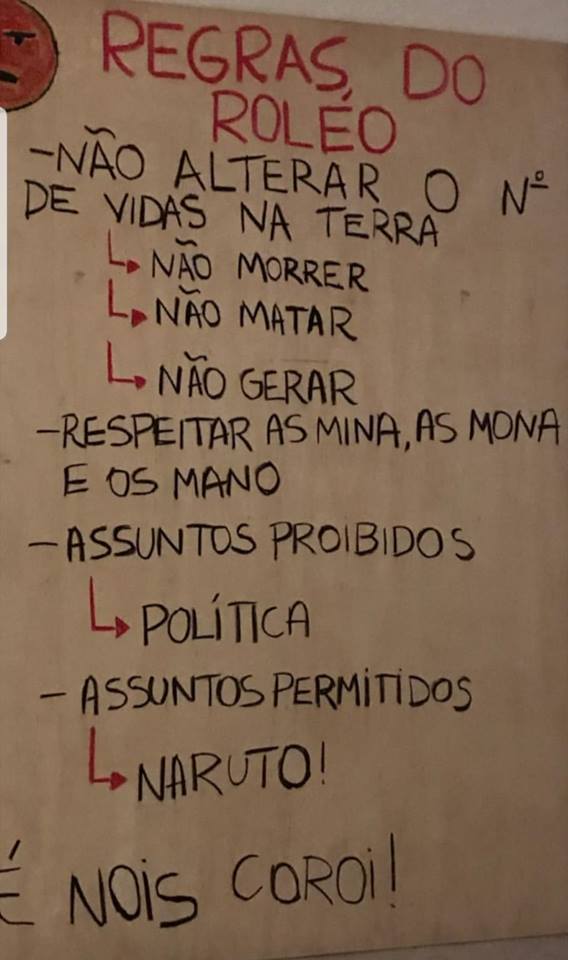 REGRAS DO
ROLÉO
-NÃO ALTERAR O Nº
DE VIDAS NA TERRA
NÃO MORRER
NÃO MATAR
NÃO GERAR
-RESPEITAR AS MINA, AS MONA
E OS MANO
-ASSUNTOS PROIBIDOS
POLÍTICA
- ASSUNTOS PERMITIDOS
NARUTO!
É NOIS COROI!